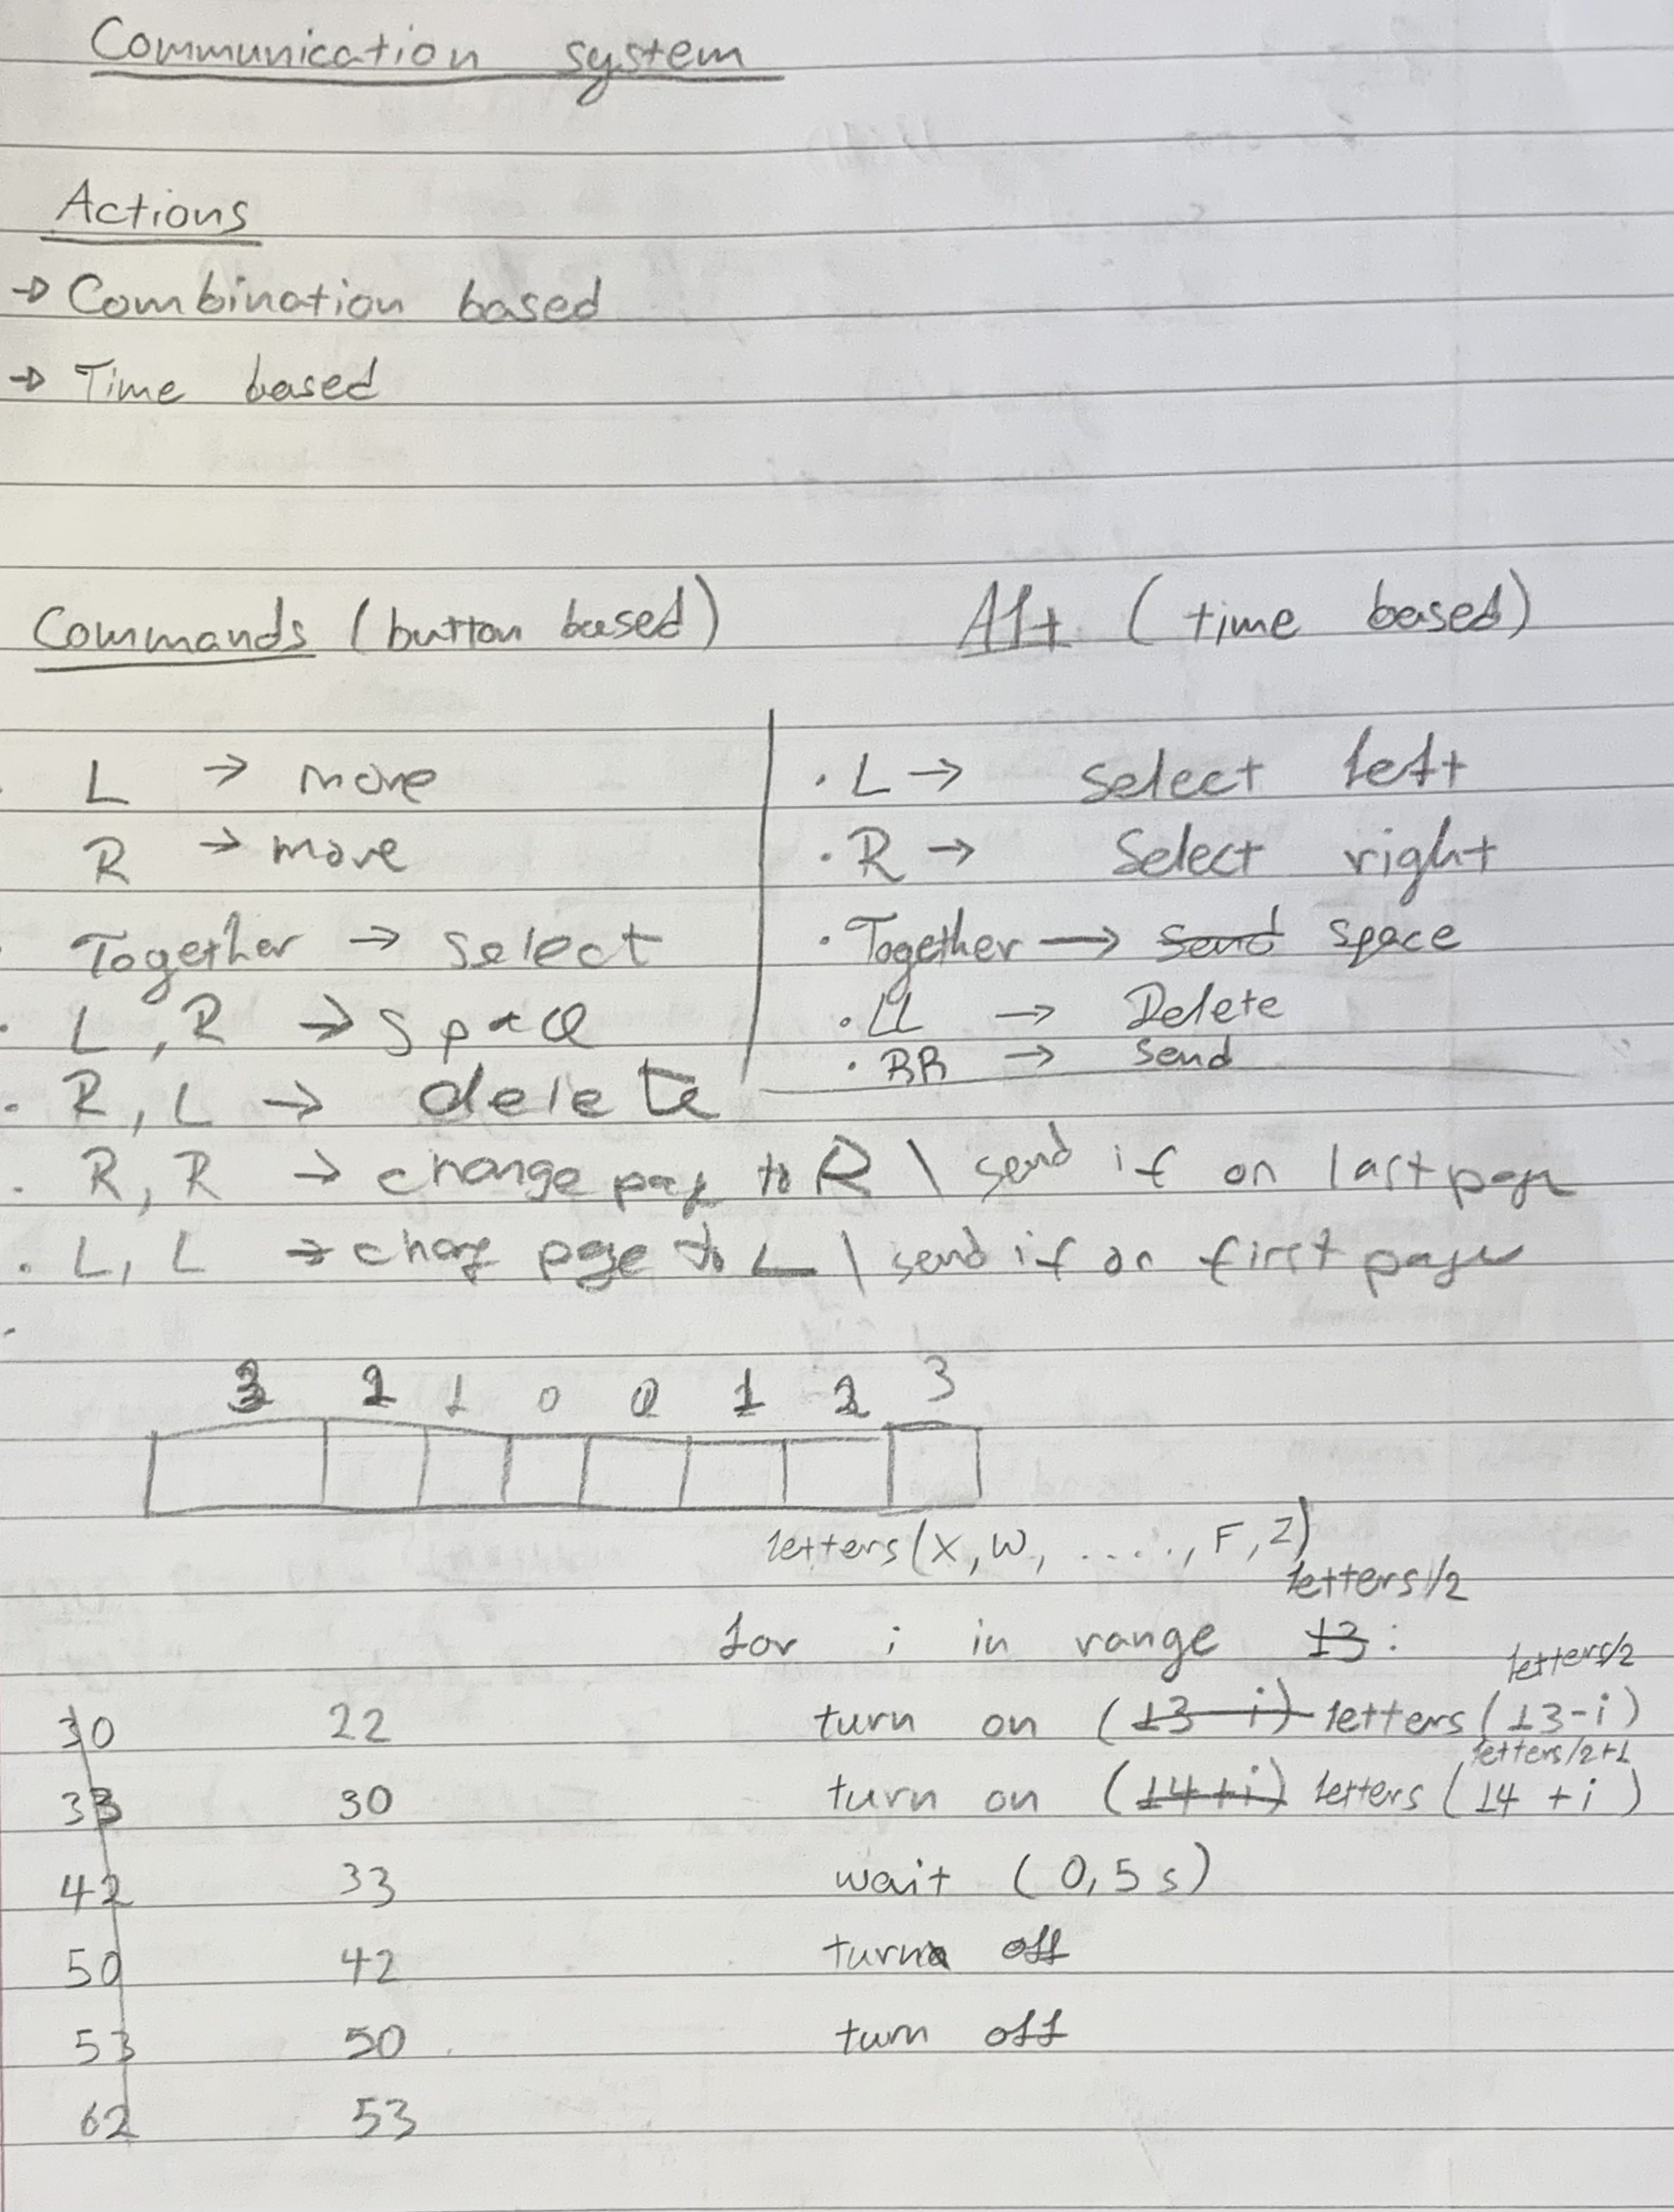 Communication system
Actions
→ Combination based
→ Time based
Commands (button based)
Alt (time based)
L → move
R → move
Together → select
. L, R → space
. R, L → delete
. R, R → change page to R \ send if on last page
. L, L → chang page to L \ send if on first page
. L → select left
. R → Select right
. Together → send space
. LL → Delete
. RR → send
3 2 1 0 0 1 2 3
letters (X, W, ....., F, Z)
letters/2
for i in range 13:
letters/2
turn on (13 - i) letters (13-i)
letters/2+1
turn on (14+i) letters (14 + i)
wait (0,5 s)
turn off
turn off
30 22
33 30
42 33
50 42
53 50
62 53